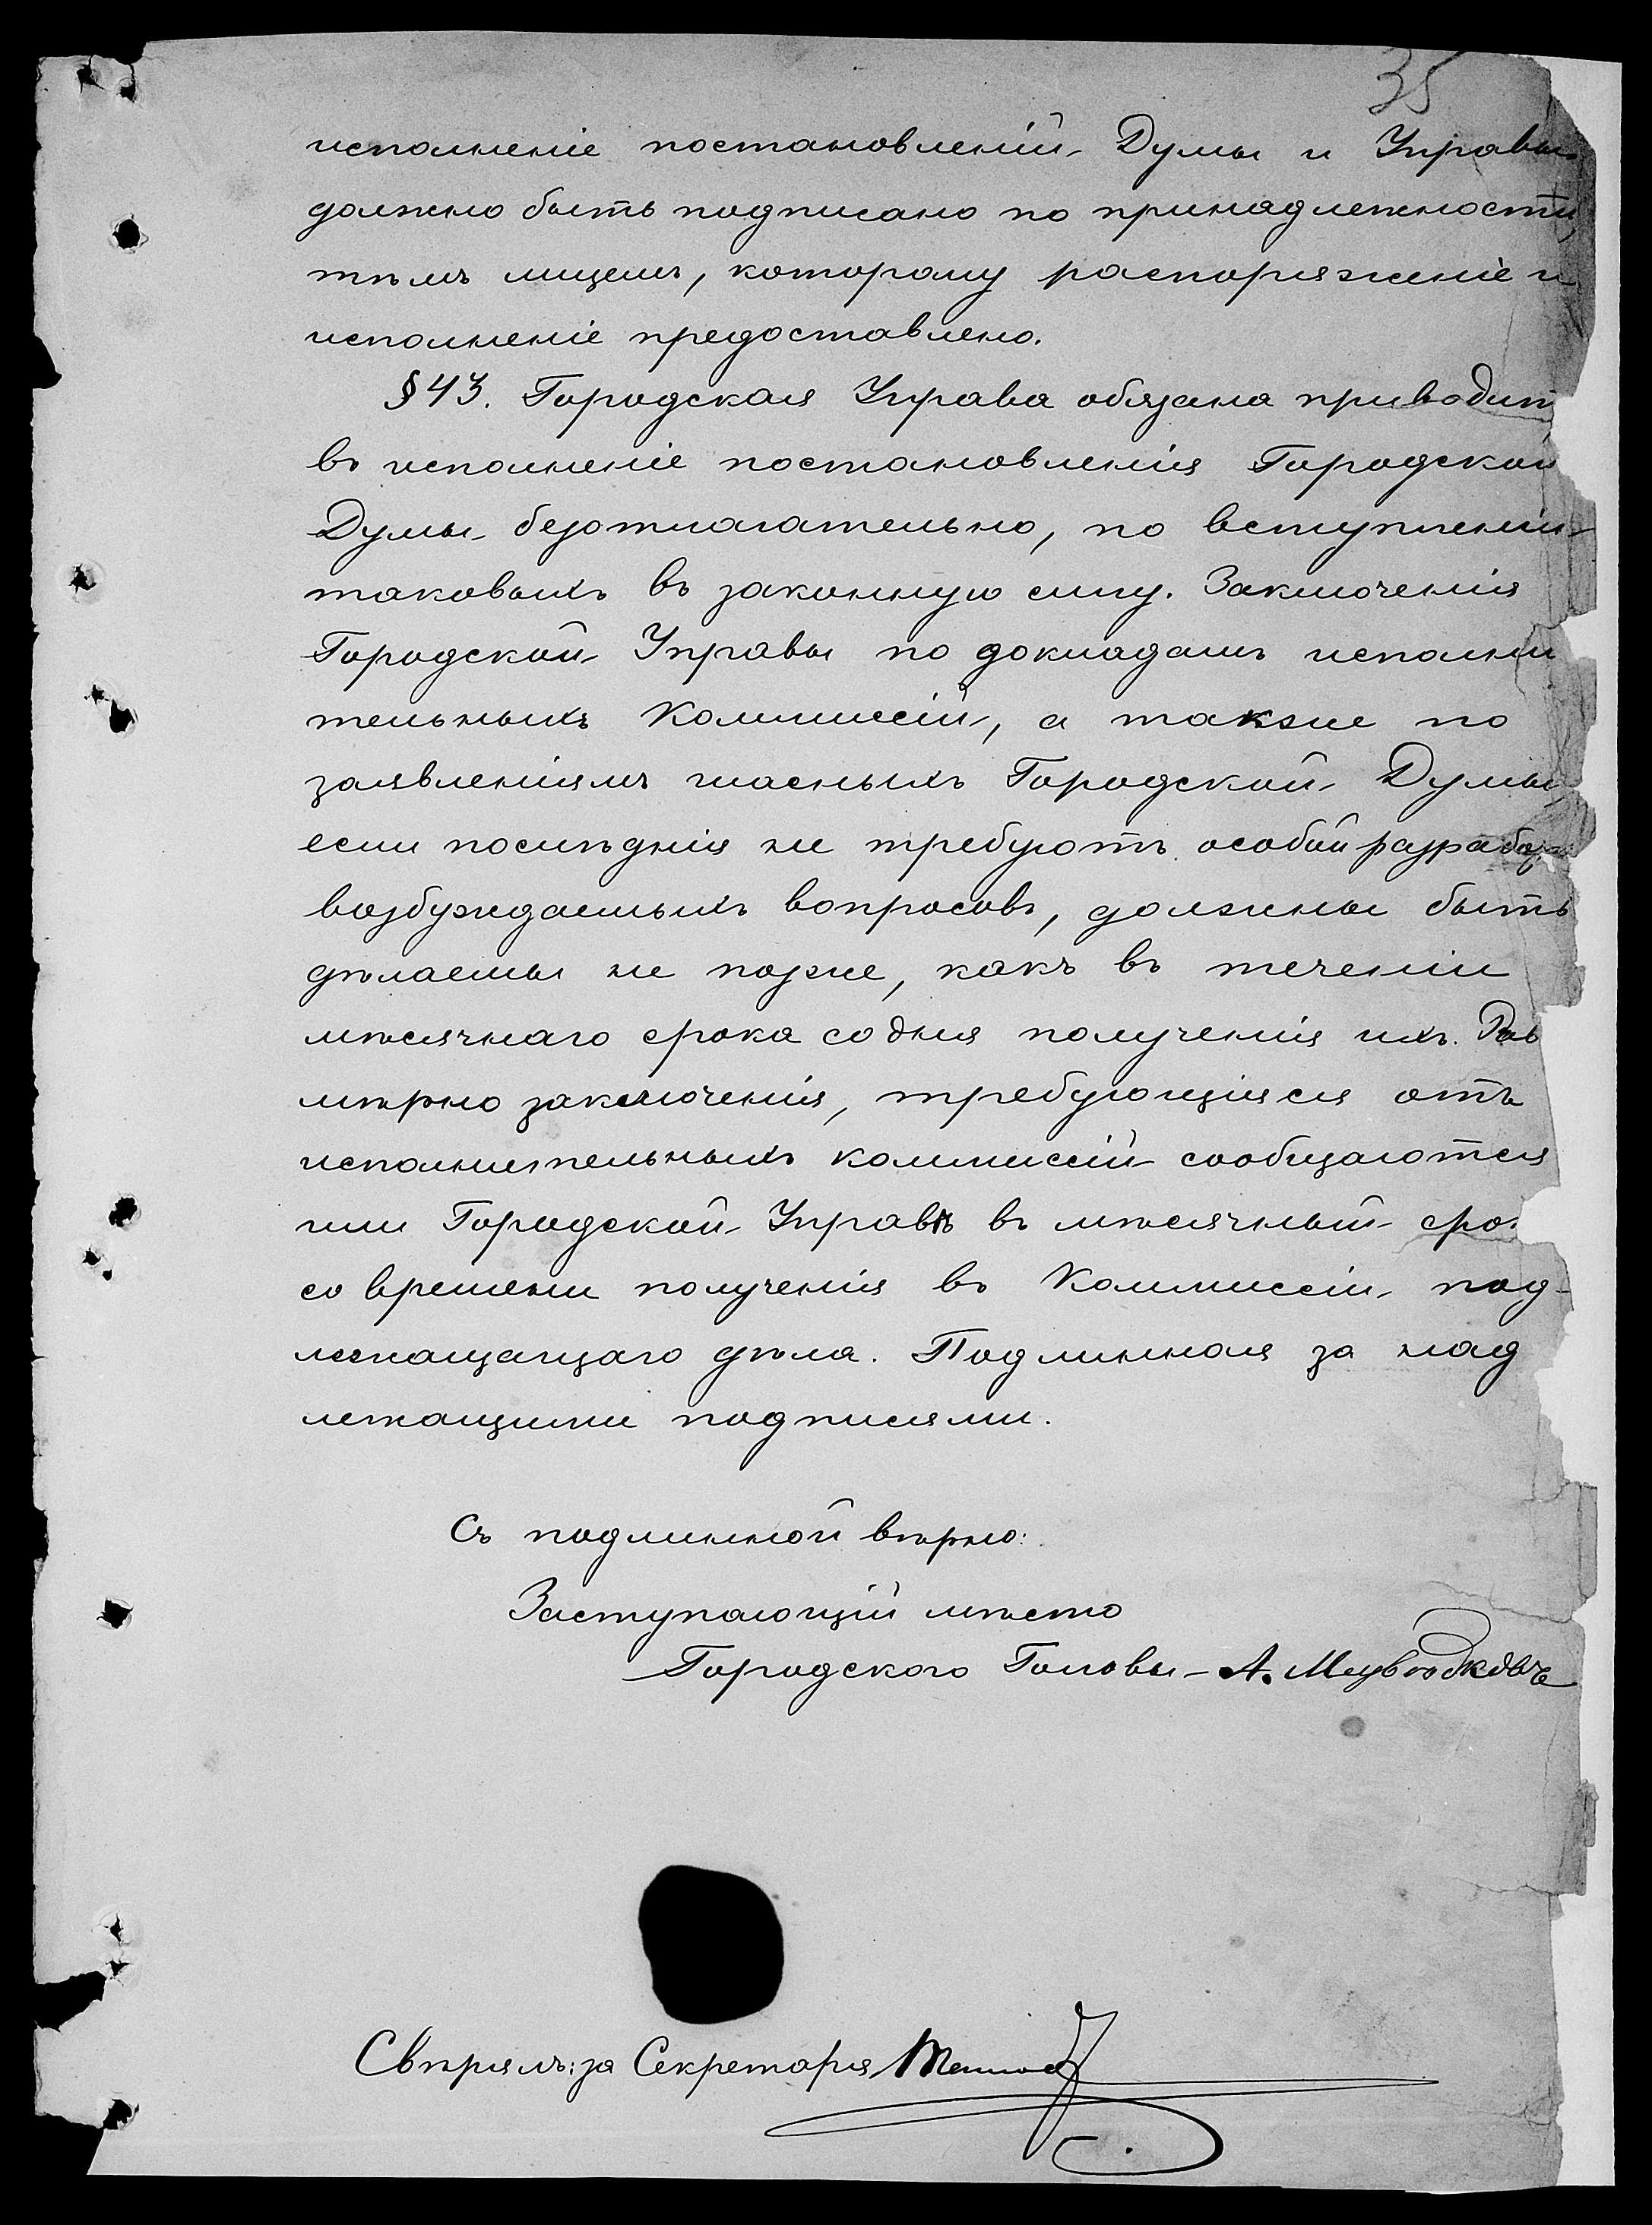 35
исполненіе постановленій Думы и Управы
должно быть подписано по принадлежности,
тѣмъ лицемъ, которому распоряженіе и
исполненіе предоставлено.
§ 43. Городская Управа обязана приводит
въ исполненіе постановленія Городской
Думы безотлагательно, по вступленіи
таковыхъ въ законную силу. Заключенія
Городской Управы по докладамъ исполни
тельныхъ Коммиссій, а также по
заявленіямъ гласныхъ Городской Думы,
если послѣднія не требуютъ особой разрабо
возбуждаемыхъ вопросовъ, должны быть
дѣлаемы не позже, какъ въ теченіи
мѣсячнаго срока со дня полученія ихъ. Рав
мѣрно заключенія, требующіяся отъ
исполнительныхъ коммиссій сообщаются
или Городской Управѣ въ мѣсячный сро
со времени полученія въ Коммиссіи под-
лежащащаго дѣла. Подлинная за над
лежащими подписями.
Съ подлинной вѣрно:
Заступающій мѣсто
Городского Головы – А.
Свѣрялъ: за Секретаря